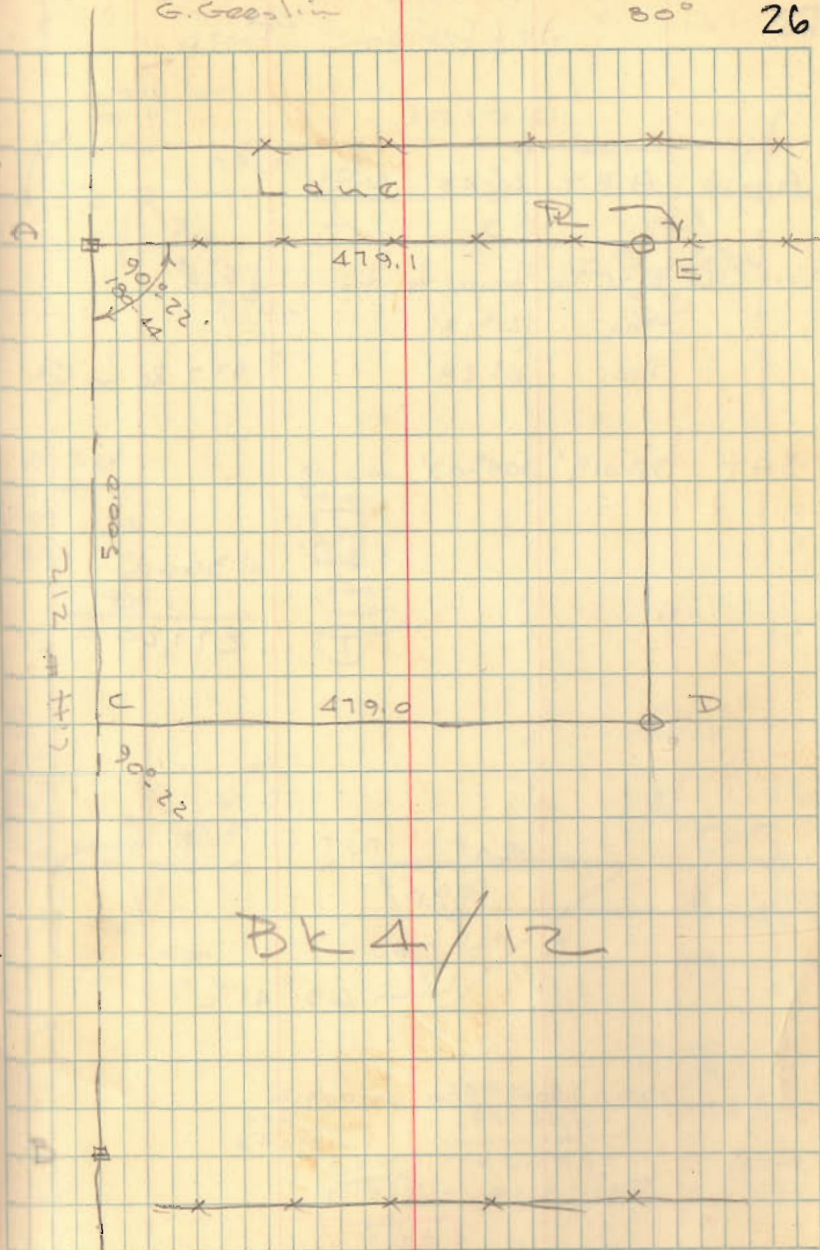 G. Geeslin 80° 26
Lane
D
PL
479.1
E
90°-22
180-44
500.0
C.H # 212
C
479.0
D
90°-22
Bk 4/12